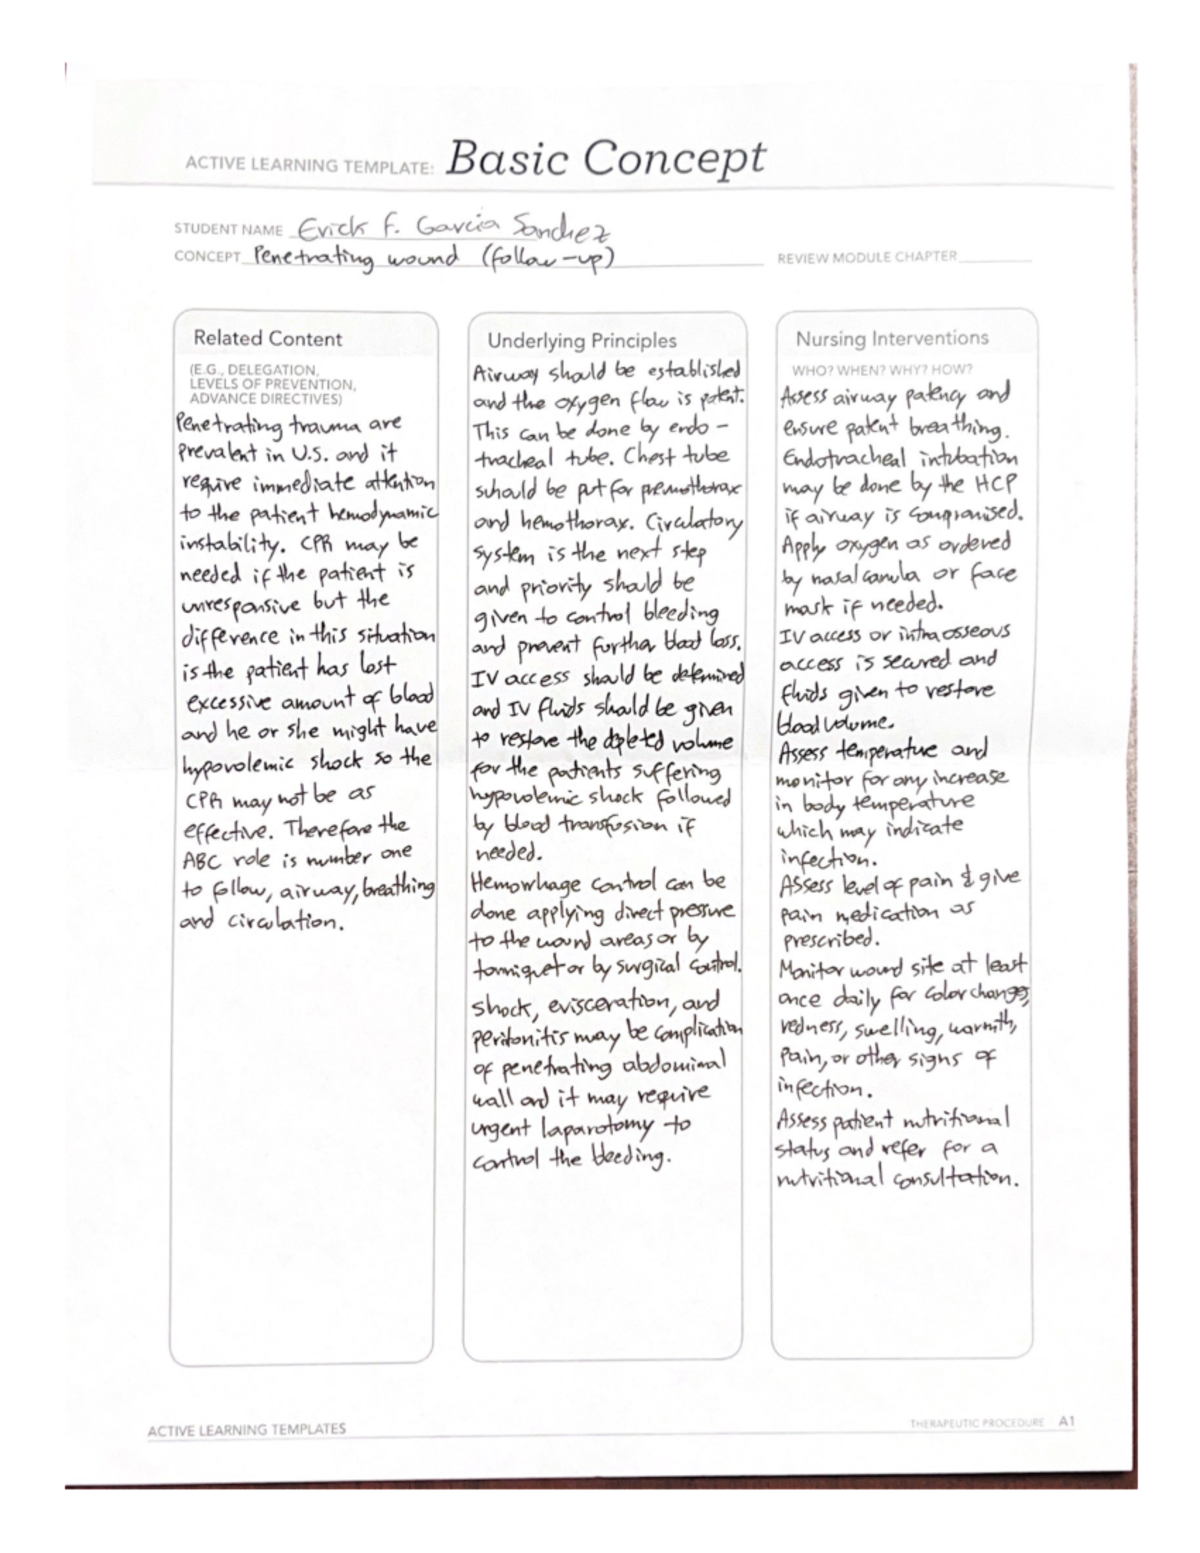 ACTIVE LEARNING TEMPLATE: Basic Concept
STUDENT NAME Erick F. Garcia Sanchez
CONCEPT Penetrating wound (follow-up)
REVIEW MODULE CHAPTER
Related Content
(E.G., DELEGATION,
LEVELS OF PREVENTION,
ADVANCE DIRECTIVES)
Penetrating trauma are
prevalent in U.S. and it
require immediate attention
to the patient hemodynamic
instability. CPR may be
needed if the patient is
unresponsive but the
difference in this situation
is the patient has lost
excessive amount of blood
and he or she might have
hypovolemic shock so the
CPR may not be as
effective. Therefore the
ABC role is number one
to follow, airway, breathing
and circulation.
Underlying Principles
Airway should be established
and the oxygen flow is patent.
This can be done by endo-
tracheal tube. Chest tube
should be put for pneumothorax
and hemothorax. Circulatory
system is the next step
and priority should be
given to control bleeding
and prevent further blood loss.
IV access should be determined
and IV fluids should be given
to restore the depleted volume
for the patients suffering
hypovolemic shock followed
by blood transfusion if
needed.
Hemorrhage control can be
done applying direct pressure
to the wound areas or by
tourniquet or by surgical control.
shock, evisceration, and
peritonitis may be complication
of penetrating abdominal
wall and it may require
urgent laparotomy to
control the bleeding.
Nursing Interventions
WHO? WHEN? WHY? HOW?
Assess airway patency and
ensure patent breathing.
Endotracheal intubation
may be done by the HCP
if airway is compromised.
Apply oxygen as ordered
by nasal canula or face
mask if needed.
IV access or intraosseous
access is secured and
fluids given to restore
blood volume.
Assess temperature and
monitor for any increase
in body temperature
which may indicate
infection.
Assess level of pain & give
pain medication as
prescribed.
Monitor wound site at least
once daily for color changes,
redness, swelling, warmth,
pain, or other signs of
infection.
Assess patient nutritional
status and refer for a
nutritional consultation.
ACTIVE LEARNING TEMPLATES
THERAPEUTIC PROCEDURE A1